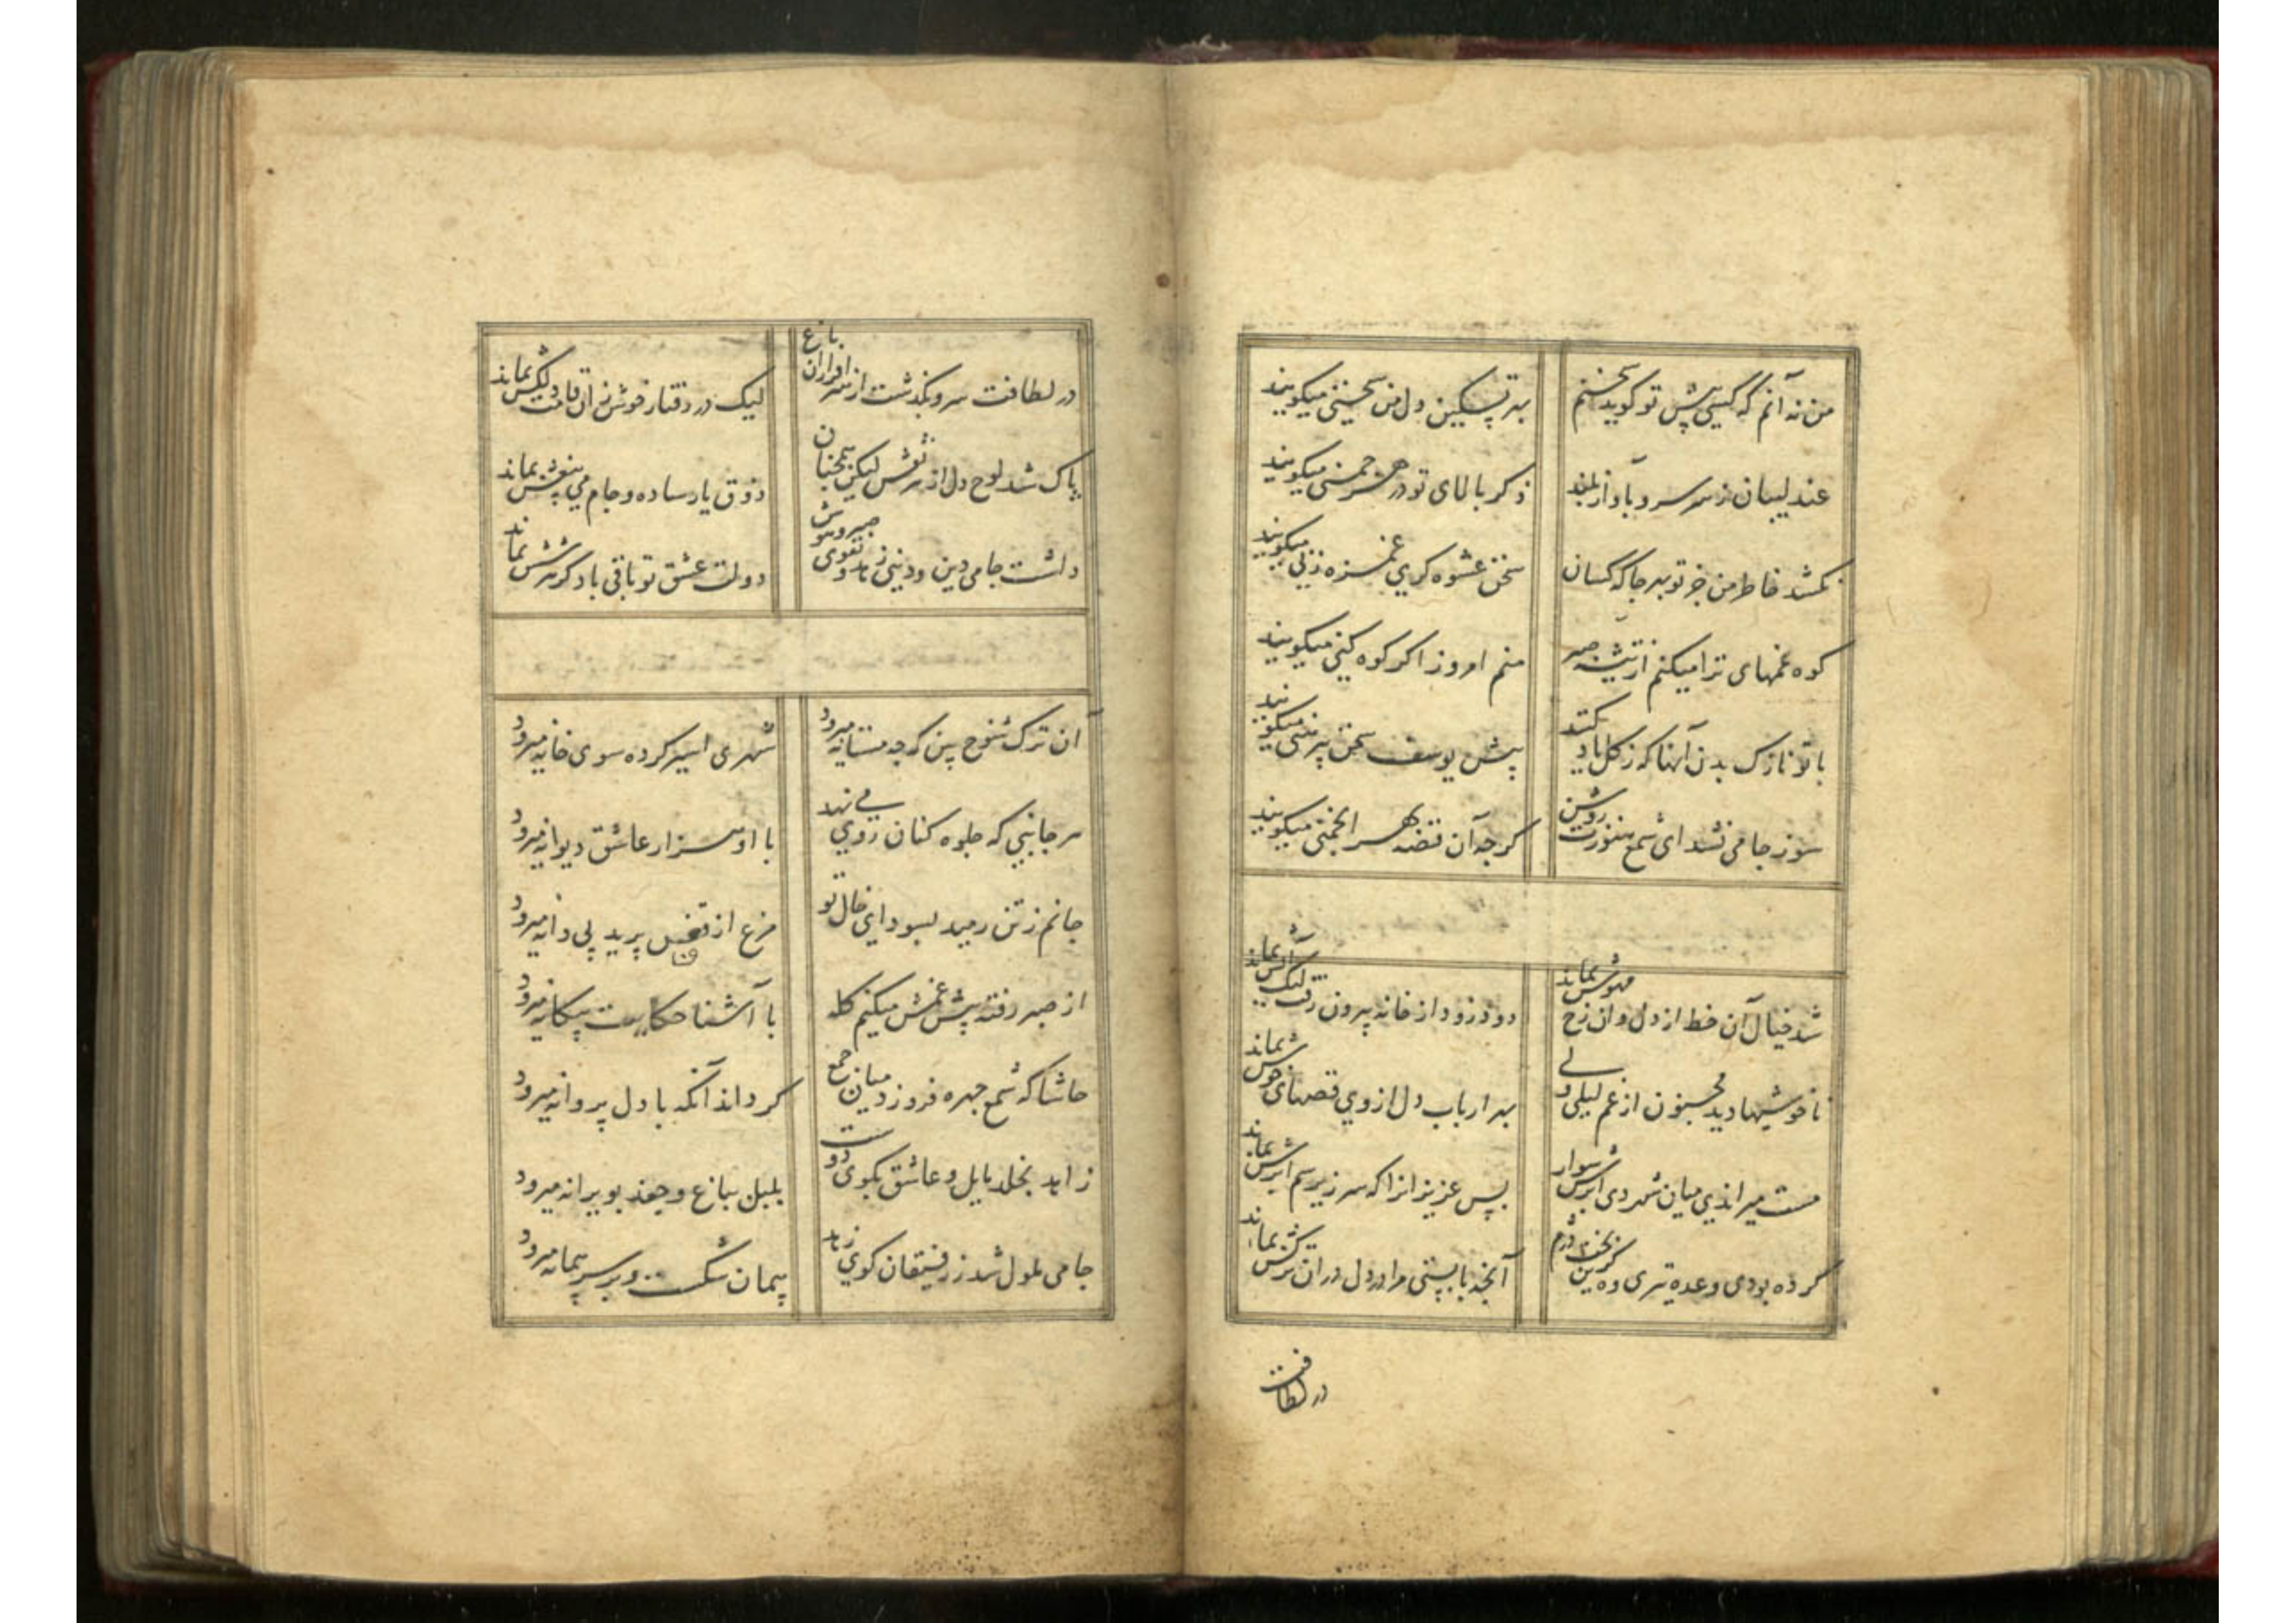 من نه آنم که کسی پیش تو گوید سخنم
بهر تسکین دل من سخنی میکویند
عندلیبان ز سر سرو بآواز بلند
ذکر بالای تو در هر چمنی میکویند
نکشد خاطر من جز تو بهر جا که کسان
سخن عشوه کری غمزه زنی میکویند
کوه غمهای ترا میکنم از تیشه صبر
منم امروز اکر کوه کنی میکویند
با تو نازک بدن آنها که ز کل یاد کنند
پیش یوسف سخن پیرهنی میکویند
سوز جامی نشد ای شمع هنوزت روشن
کرچه آن قصه بهر انجمنی میکویند
شد خیال آن خط از دل وان رخ مهوش بماند
دود زود از خانه بیرون رفت لیک آتش بماند
ناخوشیها دید مجنون از غم لیلی ولی
بهر ارباب دل از وی قصهای خوش بماند
مست میراندی میان شهر دی ابرش سوار
بس عزیزانرا که سر زیر سم ابرش بماند
کرده بودی وعده تیری وه کزین بخت دژم
آنچه بایستی مرا در دل در ان ترکش بماند
در لطافت
در لطافت سرو بگذشت از سرافرازان باغ
لیک در رفتار خوش زان قامت دلکش بماند
پاک شد لوح دل از هر نقش لیکن همچنان
ذوق یار ساده و جام می بیغش بماند
داشت جامی دین و دنیی زهد و تقوی صبر و هوش
دولت عشق تو باقی باد کر هر شش بماند
آن ترک شوخ بین که چه مستانه میرود
شهری اسیر کرده سوی خانه میرود
هر جانبی که جلوه کنان روی می نهد
با او هزار عاشق دیوانه میرود
جانم ز تن رمید بسودای خال تو
مرغ از قفس پرید پی دانه میرود
از صبر رفته پیش غمش میکنم کله
با آشنا حکایت بیکانه میرود
حاشا که شمع چهره فروزد میان جمع
کر داند آنکه با دل پروانه میرود
زاهد بخلد مایل و عاشق بکوی دوست
بلبل بباغ و جغد بویرانه میرود
جامی ملول شد ز رفیقان کوی زهد
پیمان شکست و بر سر پیمانه میرود